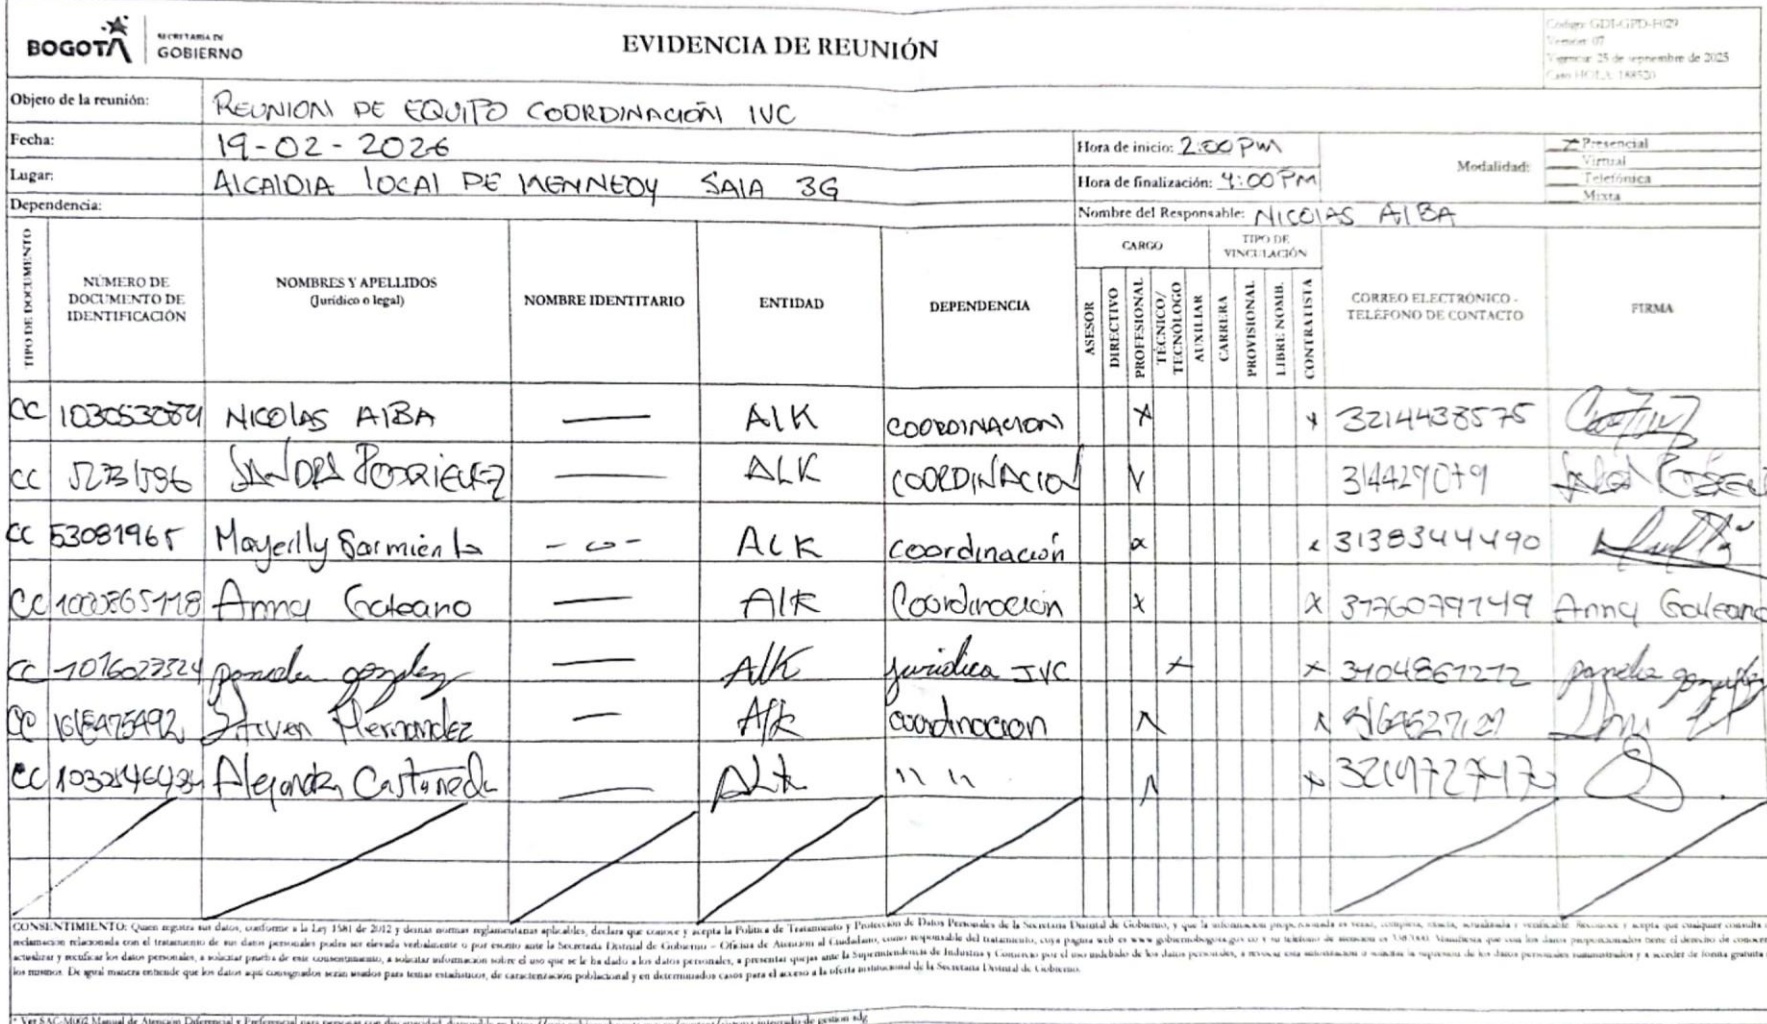 BOGOTÁ
SECRETARÍA DE
GOBIERNO
EVIDENCIA DE REUNIÓN
Código: GDI-GPD-F029
Versión: 07
Vigencia: 25 de septiembre de 2025
Caso HOLA: 188520
Objeto de la reunión: REUNION DE EQUIPO COORDINACIÓN IVC
Fecha: 19-02-2026
Hora de inicio: 2:00 PM
Lugar: ALCALDIA LOCAL DE KENNEDY SALA 3G
Hora de finalización: 4:00 PM
Modalidad:
Presencial
Virtual
Telefónica
Mixta
Dependencia:
Nombre del Responsable: NICOLAS ALBA
TIPO DE DOCUMENTO
NÚMERO DE DOCUMENTO DE IDENTIFICACIÓN
NOMBRES Y APELLIDOS (Jurídico o legal)
NOMBRE IDENTITARIO
ENTIDAD
DEPENDENCIA
CARGO
ASESOR
DIRECTIVO
PROFESIONAL
TÉCNICO/TECNÓLOGO
AUXILIAR
TIPO DE VINCULACIÓN
CARRERA
PROVISIONAL
LIBRE NOMB.
CONTRATISTA
CORREO ELECTRÓNICO - TELÉFONO DE CONTACTO
FIRMA
CC NICOLAS ALBA — ALK COORDINACION X x 3214438575
CC SANDRA RODRIGUEZ — ALK COORDINACION
CC 53081965 Mayerlly Sarmiento ALK Coordinación x x 3138344490
CC Anna Galeano — ALK Coordinación x x 3176079149 Anna Galeano
CC pamela gonzalez — ALK juridica IVC x x 3104861212 pamela gonzalez
CC Stiven Hernandez — Alk coordinacion
CC Alejandra Castañeda — ALK " "
CONSENTIMIENTO: Quien registra sus datos, conforme a la Ley 1581 de 2012 y demás normas reglamentarias aplicables, declara que conoce y acepta la Política de Tratamiento y Protección de Datos Personales de la Secretaría Distrital de Gobierno, y que la información proporcionada es veraz, completa, exacta, actualizada y verificable. Reconoce y acepta que cualquier consulta o
reclamación relacionada con el tratamiento de sus datos personales podrá ser elevada verbalmente o por escrito ante la Secretaría Distrital de Gobierno – Oficina de Atención al Ciudadano, como responsable del tratamiento, cuya página web es www.gobiernobogota.gov.co y su teléfono de atención es Manifiesta que con los datos proporcionados tiene el derecho de conocer,
actualizar y rectificar los datos personales, a solicitar prueba de este consentimiento, a solicitar información sobre el uso que se le ha dado a los datos personales, a presentar quejas ante la Superintendencia de Industria y Comercio por el uso indebido de los datos personales, a revocar esta autorización o solicitar la supresión de los datos personales suministrados y a acceder de forma gratuita a
los mismos. De igual manera entiende que los datos aquí consignados serán usados para temas estadísticos, de caracterización poblacional y en determinados casos para el acceso a la oferta institucional de la Secretaría Distrital de Gobierno.
* Ver SAC-M002 Manual de Atención Diferencial y Preferencial para personas con discapacidad,